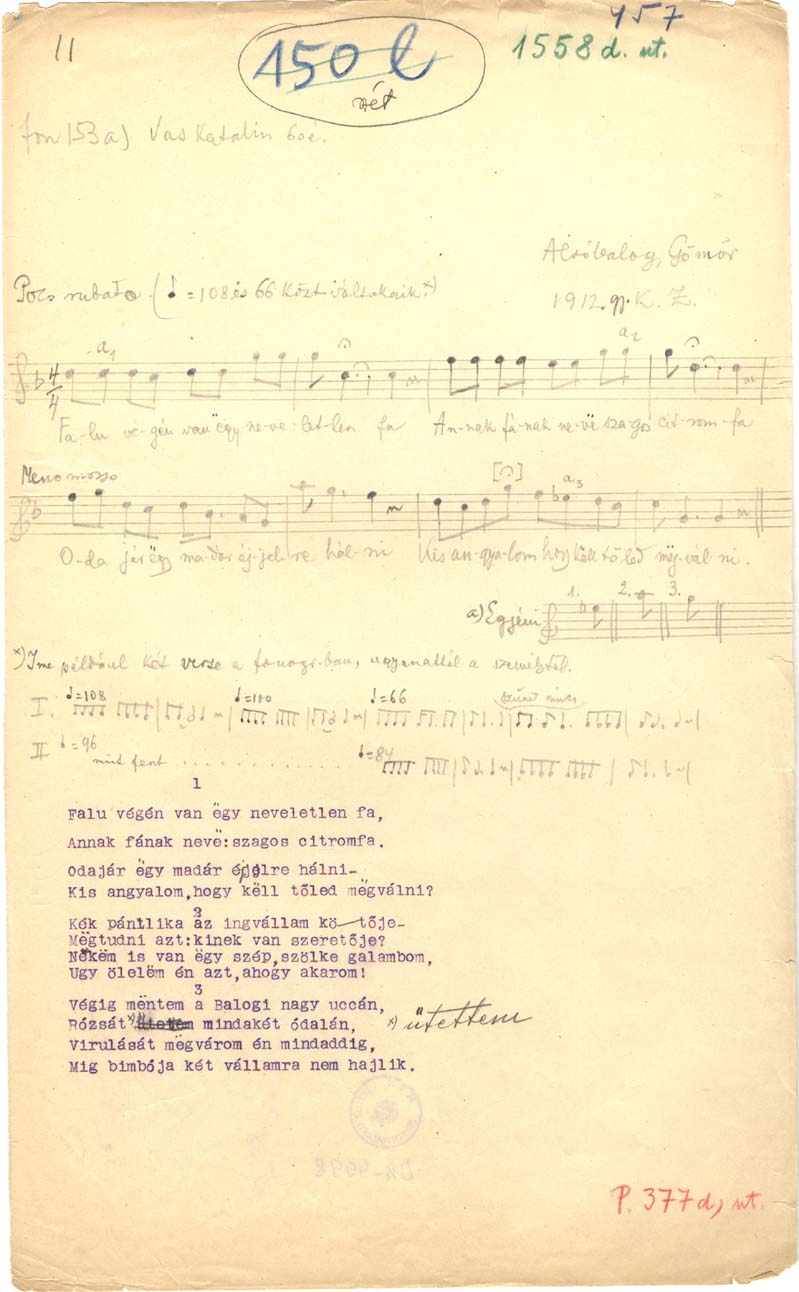 11
150 l
457
1558 d. ut.
fon 153 a) Vas Katalin 60é.
Alsóbalog, Gömör
Poco rubato (♩ = 108 és 66 közt váltakozik. x)
1912. gy. K. Z.
a1
a2
4/4
Fa-lu vé-gén van ëgy ne-ve-let-len fa An-nak fá-nak ne-vë sza-gos cit-rom-fa
Meno mosso
a3
O-da jár ëgy ma-dár éj-jel-re hál-ni Kis an-gya-lom hogy këll tő-led mëg-vál-ni.
a) Egyéni 1. 2. 3.
x) Ime például két verse a fonogr.-ban, ugyanattól a személytől.
I. ♩=108 ♩=100 ♩=66 szünet nincs
II ♩=96 mint fent ♩=84
1
Falu végén van ëgy neveletlen fa,
Annak fának nevë:szagos citromfa.
Odajár ëgy madár éjjelre hálni-
Kis angyalom,hogy këll tőled mëgválni?
2
Kék pántlika az ingvállam kö tője-
Mëgtudni azt:kinek van szeretője?
Nekëm is van ëgy szép,szölke galambom,
Ugy ölelëm én azt,ahogy akarom!
3
Végig mëntem a Balogi nagy uccán,
Rózsát x) mindakét ódalán, x) ütettem
Virulását mëgvárom én mindaddig,
Mig bimbója két vállamra nem hajlik.
P. 377 d, ut.